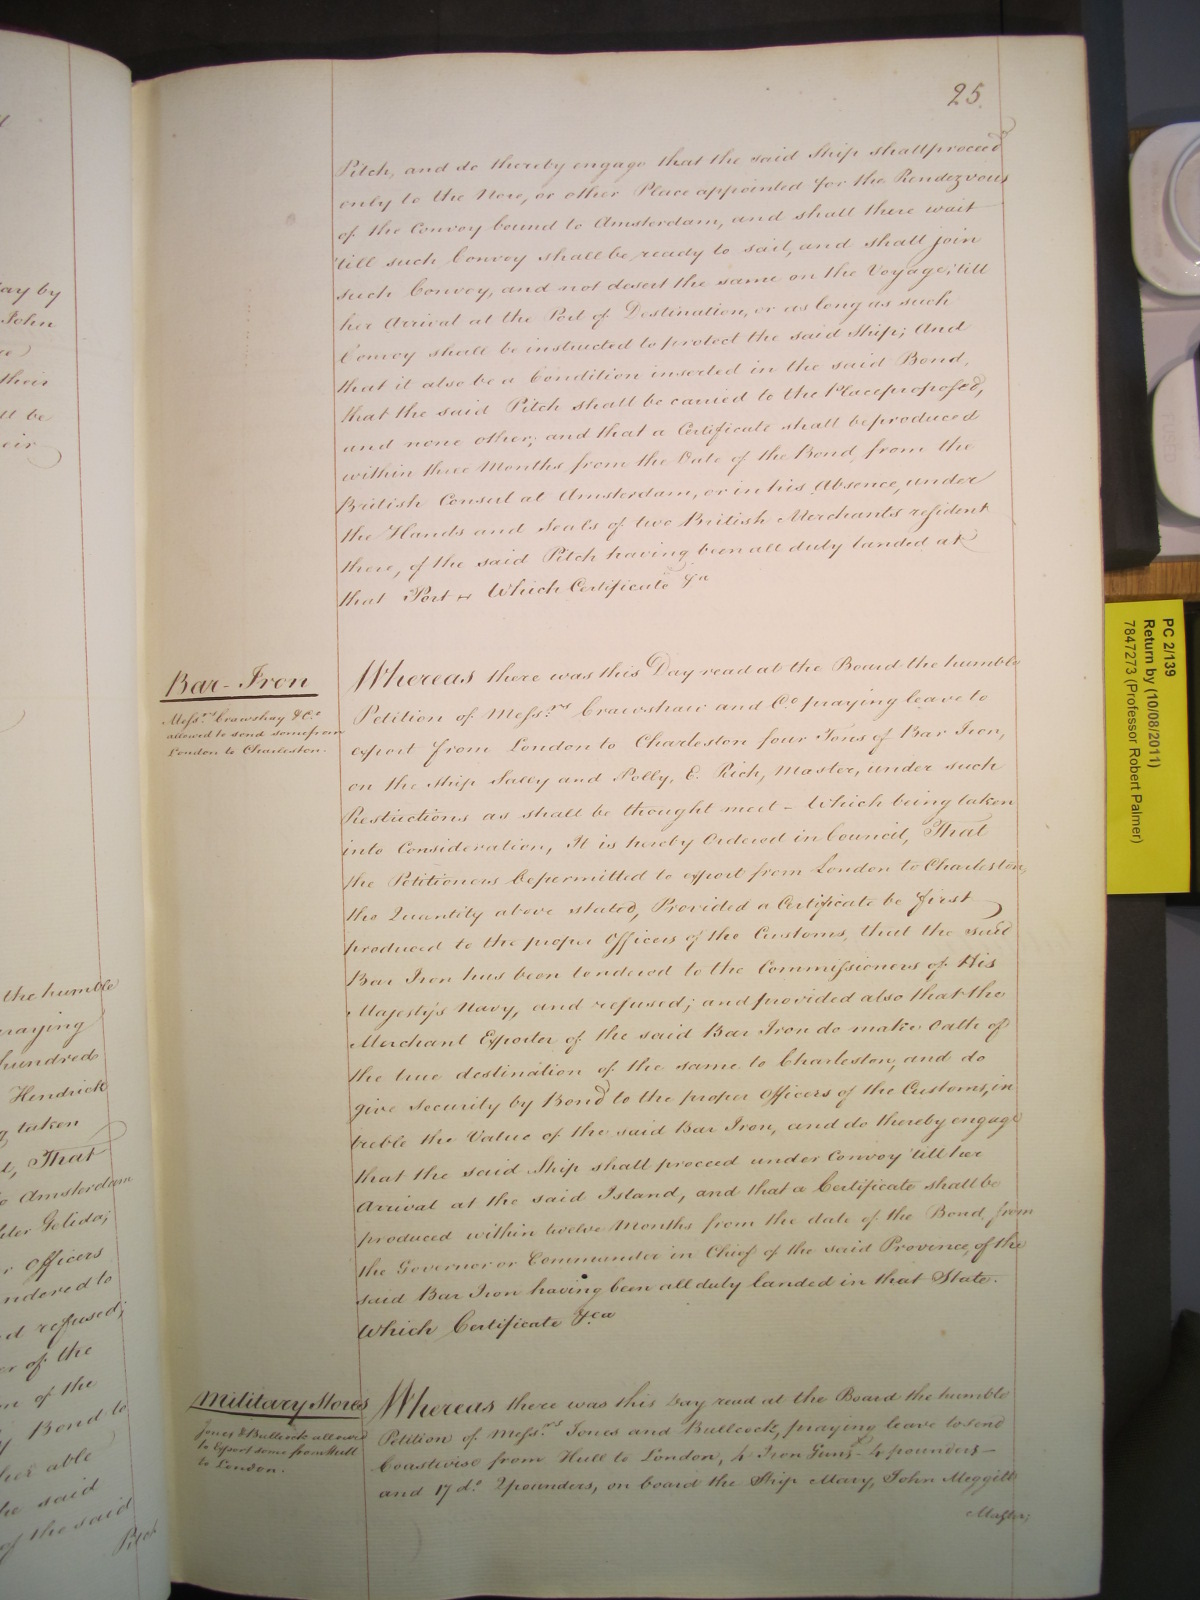 25.
Pitch, and do thereby engage that the said Ship shall proceed
only to the Nore, or other Place appointed for the Rendezvous
of the Convoy bound to Amsterdam, and shall there wait
'till such Convoy shall be ready to sail, and shall join
such Convoy, and not desert the same on the Voyage, 'till
her Arrival at the Port of Destination, or as long as such
Convoy shall be instructed to protect the said Ship; And
that it also be a Condition inserted in the said Bond,
that the said Pitch shall be carried to the Place proposed,
and none other; and that a Certificate shall be produced
within three Months from the Date of the Bond, from the
British Consul at Amsterdam, or in his Absence, under
the Hands and Seals of two British Merchants resident
there, of the said Pitch having been all duly landed at
that Port - Which Certificate &ca
Bar-Iron
Messrs. Crawshay & Co.
allowed to send some from
London to Charleston.
Whereas there was this Day read at the Board the humble
Petition of Messrs. Crawshaw and Co. praying leave to
export from London to Charleston four Tons of Bar Iron,
on the Ship Sally and Polly, E. Rich, Master, under such
Restrictions as shall be thought meet - Which being taken
into Consideration, It is hereby Ordered in Council, That
the Petitioners be permitted to export from London to Charleston,
the Quantity above stated, Provided a Certificate be first
produced to the proper Officers of the Customs, that the said
Bar Iron has been tendered to the Commissioners of His
Majesty's Navy, and refused; and provided also that the
Merchant Exporter of the said Bar Iron do make Oath of
the true destination of the same to Charleston, and do
give Security by Bond to the proper Officers of the Customs, in
treble the Value of the said Bar Iron, and do thereby engage
that the said Ship shall proceed under Convoy 'till her
Arrival at the said Island, and that a Certificate shall be
produced within twelve Months from the date of the Bond, from
the Governor or Commander in Chief of the said Province, of the
said Bar Iron having been all duly landed in that State.
Which Certificate &ca
Military Stores
Jones & Bullcock allowed
to Export some from Hull
to London.
Whereas there was this Day read at the Board the humble
Petition of Messrs. Jones and Bullcock, praying leave to send
Coastwise from Hull to London, 4 Iron Guns - 4 pounders -
and 17 do. 2 pounders, on board the Ship Mary, John Meggitt
Master;
ay by
John
their
ll be
eir
the humble
praying
hundred
Hendrick
taken
That
Amsterdam
Officers
ndered to
refused;
of the
of the
Bond to
able
said
of the said
Pitch
PC 2/139
Return by (10/08/2011)
7847273 (Professor Robert Palmer)